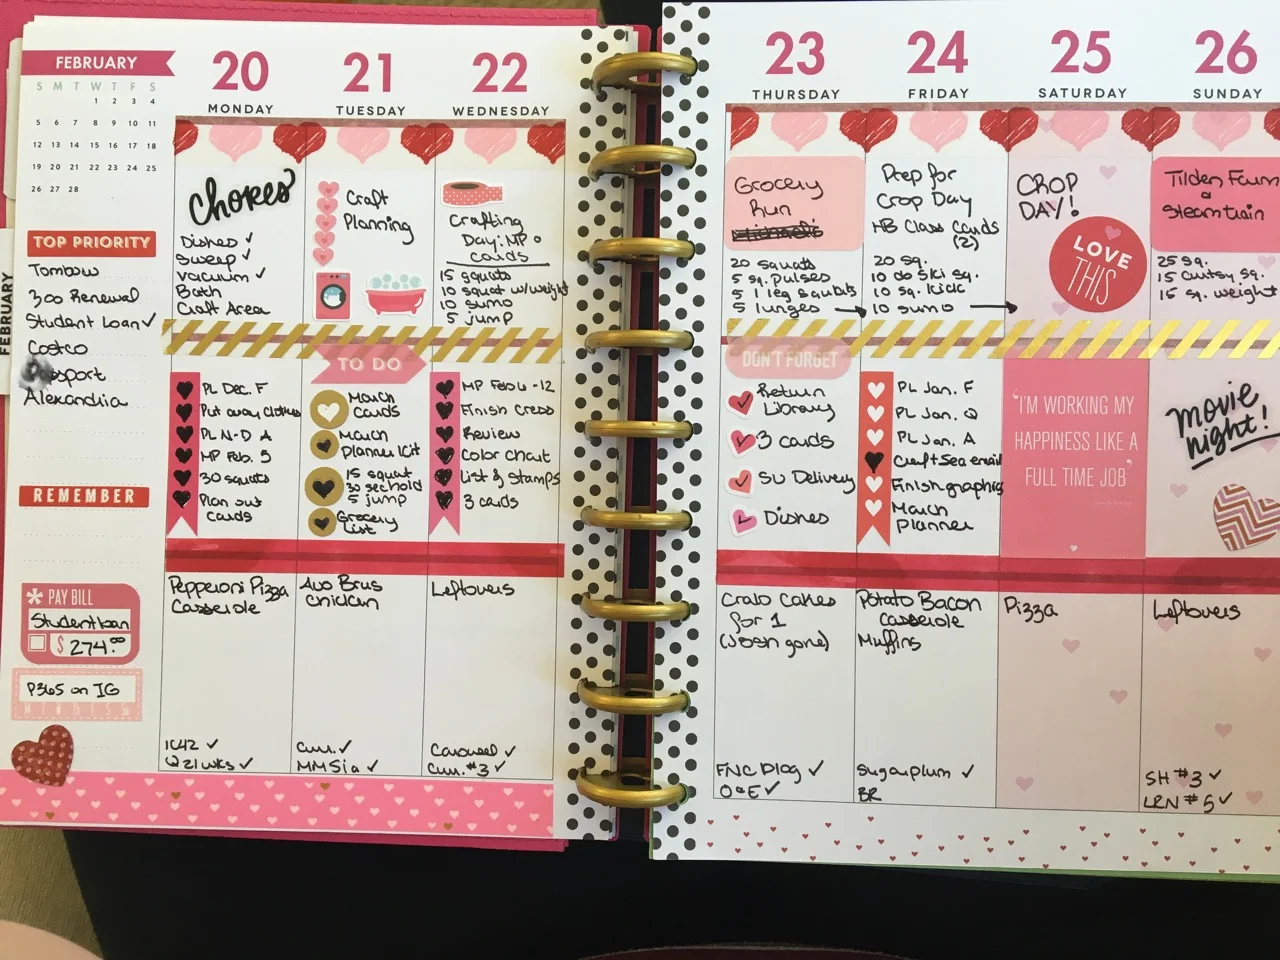 FEBRUARY
S M T W T F S
1 2 3 4
5 6 7 8 9 10 11
12 13 14 15 16 17 18
19 20 21 22 23 24 25
26 27 28
FEBRUARY
TOP PRIORITY
Tombow
300 Renewal
Student Loan ✓
Costco
sport
Alexandria
REMEMBER
PAY BILL
Student loan
$ 274.00
P365 on IG
M T W Th F S Su
20
MONDAY
chores
Dishes ✓
Sweep ✓
Vacuum ✓
Bath
Craft Area
PL Dec. F
Put away clothes
PL N-D A
MP Feb. 5
30 squats
Plan out
cards
Pepperoni Pizza
Casserole
1642 ✓
Q21 wks ✓
21
TUESDAY
Craft
Planning
TO DO
March
cards
March
Planner Kit
15 squat
30 sec hold
5 jump
Grocery
List
Avo Brus
Chicken
Cuu. ✓
MMSia ✓
22
WEDNESDAY
Crafting
Day: MP
cards
15 squats
10 squat w/weight
10 sumo
5 jump
MP Feb 6-12
Finish Cress
Review
Color chart
List & Stamps
3 cards
Leftovers
Carousel ✓
Cuu. #3 ✓
23
THURSDAY
Grocery
Run
Michael's
20 squats
5 sq. pulses
5 1 leg squats
5 lunges
DON'T FORGET
Return
Library
3 cards
SU Delivery
Dishes
Crab Cakes
for 1
(Josh gone)
FNC Blog ✓
O&E ✓
24
FRIDAY
Prep for
Crop Day
HB Class Cards
(2)
20 sq.
10 do ski sq.
10 sq. kick
10 sumo
PL Jan. F
PL Jan. Q
PL Jan. A
Craft Sea email
Finish graphics
March
Planner
Potato Bacon
Casserole
Muffins
Sugarplum ✓
BR
25
SATURDAY
CROP
DAY!
LOVE
THIS
"I'M WORKING MY
HAPPINESS LIKE A
FULL TIME JOB"
Pizza
26
SUNDAY
Tilden Farm
&
Steam train
25 sq.
15 curtsy sq.
15 sq. weight
movie
night!
Leftovers
SH #3 ✓
LRN #5 ✓